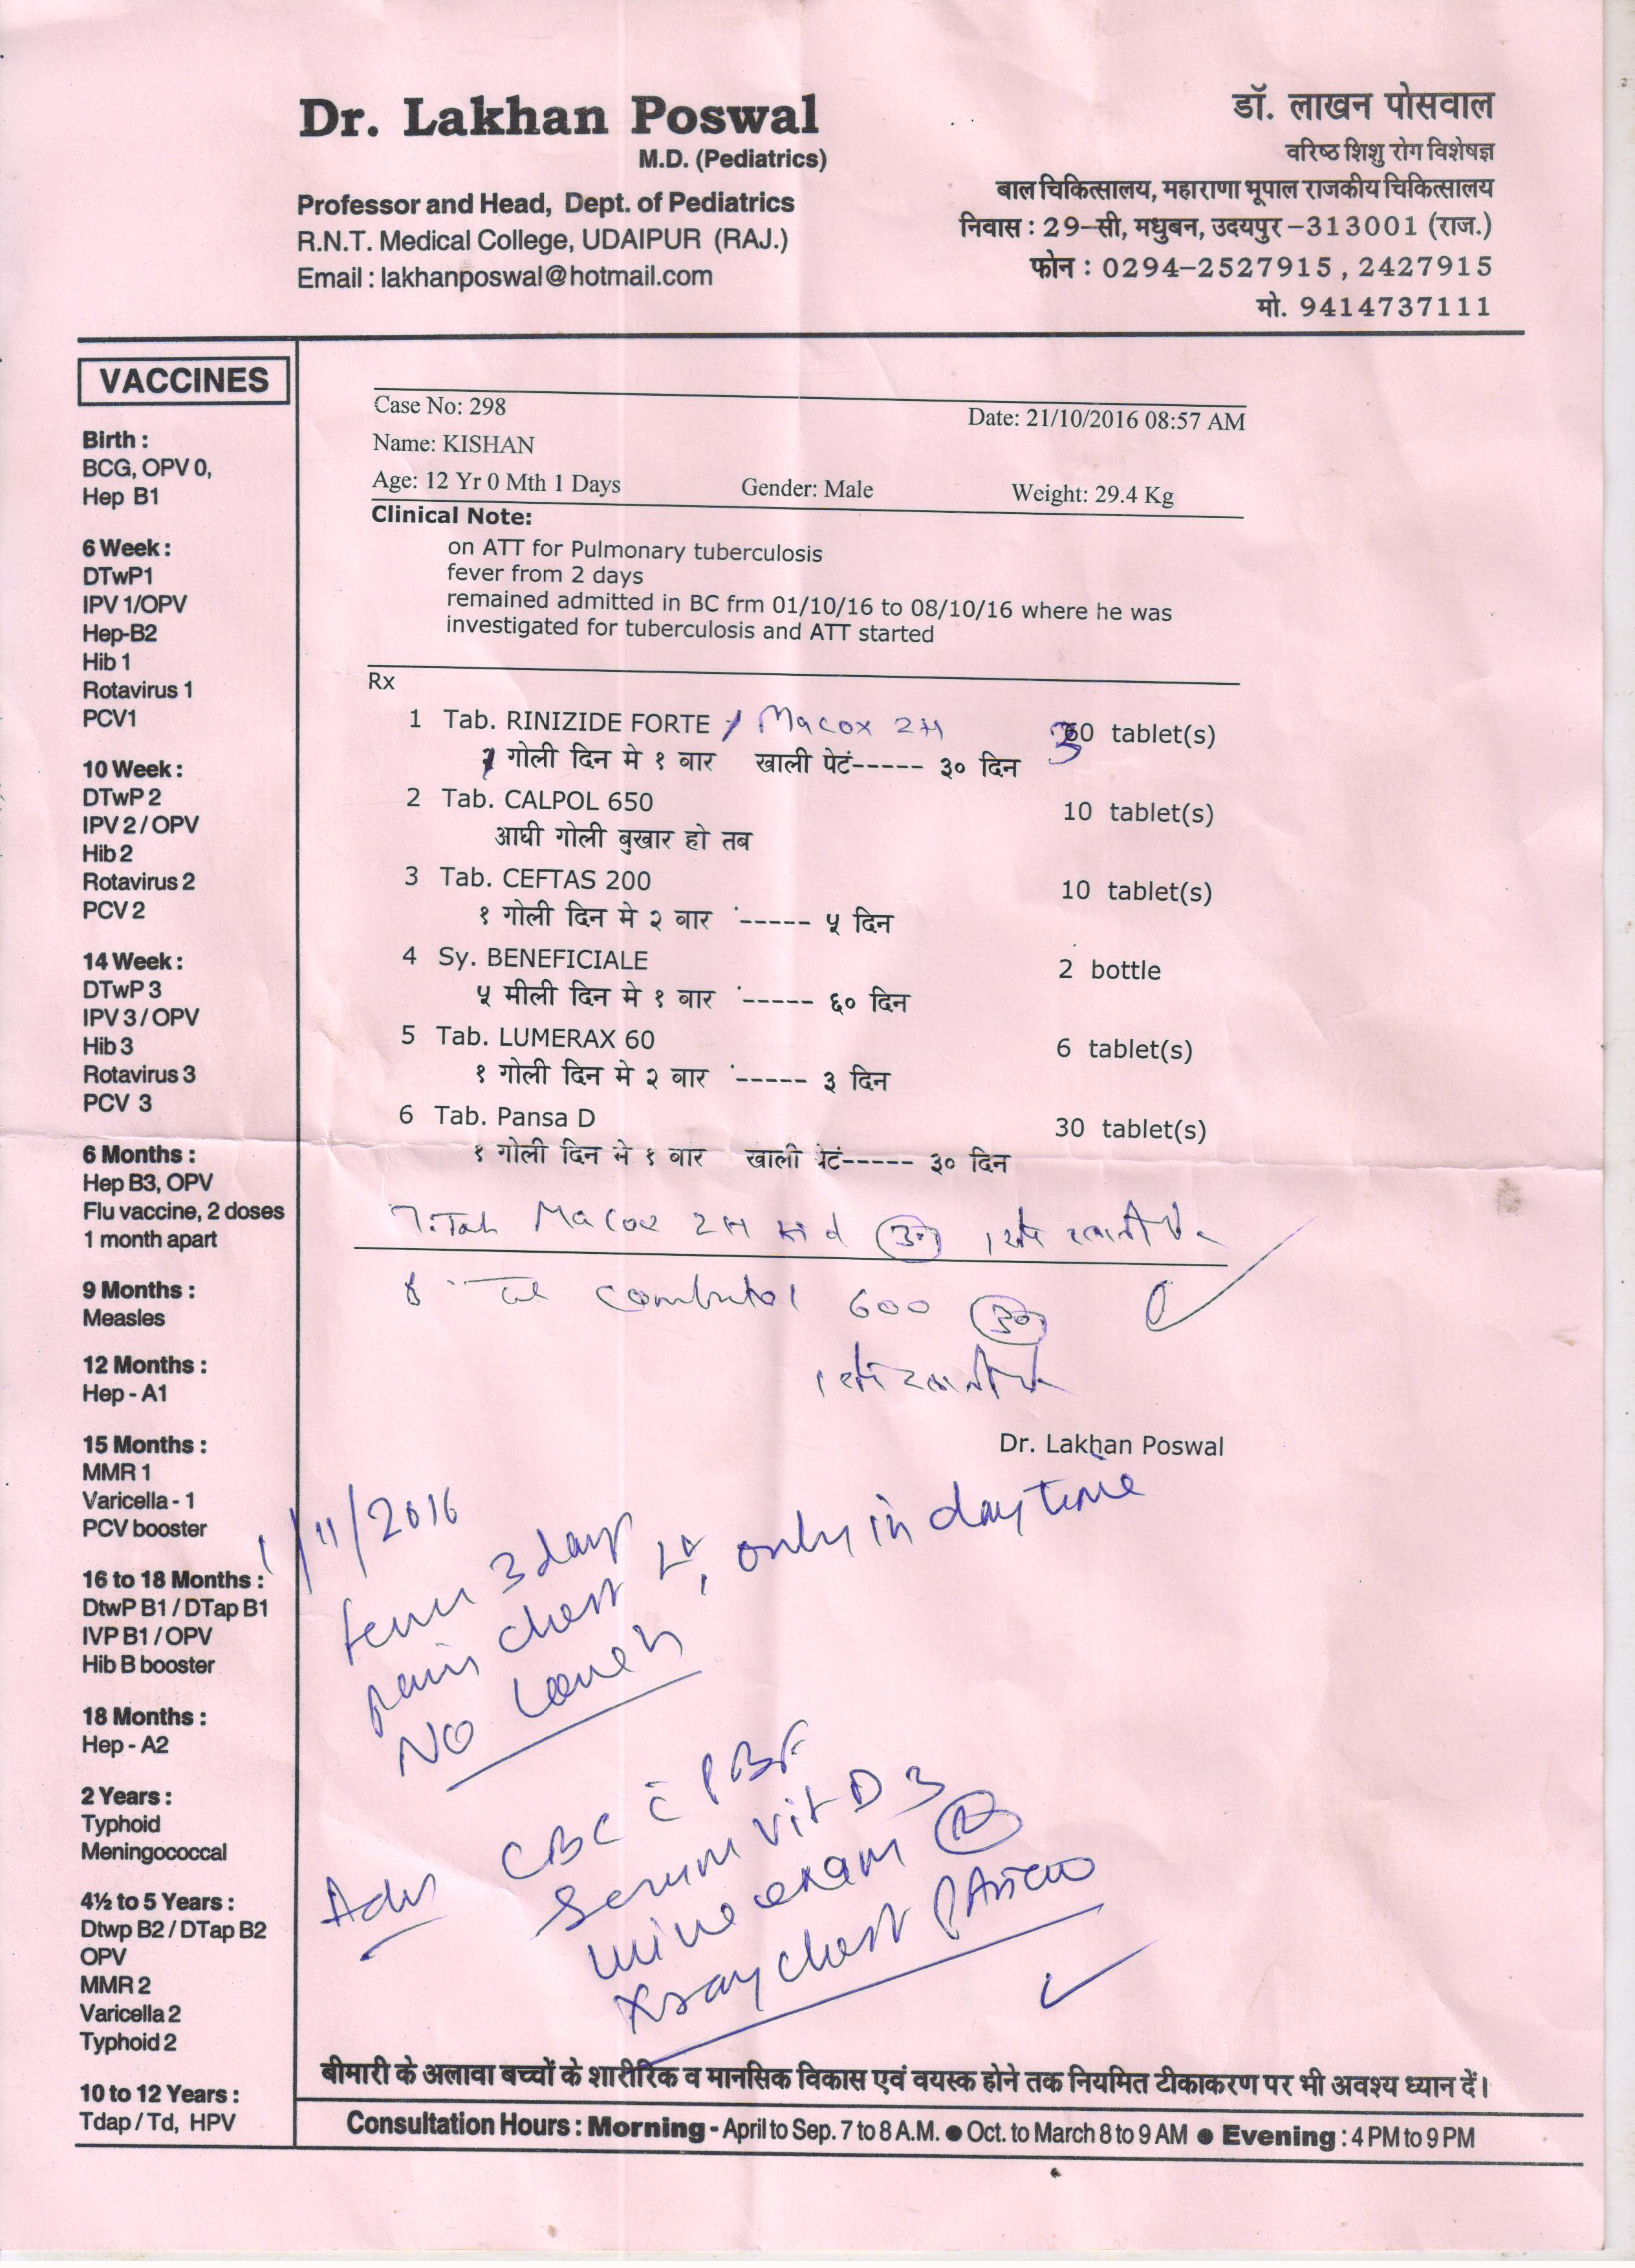 Dr. Lakhan Poswal
M.D. (Pediatrics)
Professor and Head, Dept. of Pediatrics
R.N.T. Medical College, UDAIPUR (RAJ.)
Email : lakhanposwal@hotmail.com
डॉ. लाखन पोसवाल
वरिष्ठ शिशु रोग विशेषज्ञ
बाल चिकित्सालय, महाराणा भूपाल राजकीय चिकित्सालय
निवास : 29-सी, मधुबन, उदयपुर-313001 (राज.)
फोन : 0294-2527915, 2427915
मो. 9414737111
VACCINES
Birth :
BCG, OPV 0,
Hep B1
6 Week :
DTwP1
IPV 1/OPV
Hep-B2
Hib 1
Rotavirus 1
PCV1
10 Week :
DTwP 2
IPV 2 / OPV
Hib 2
Rotavirus 2
PCV 2
14 Week :
DTwP 3
IPV 3 / OPV
Hib 3
Rotavirus 3
PCV 3
6 Months :
Hep B3, OPV
Flu vaccine, 2 doses
1 month apart
9 Months :
Measles
12 Months :
Hep - A1
15 Months :
MMR 1
Varicella - 1
PCV booster
16 to 18 Months :
DtwP B1 / DTap B1
IVP B1 / OPV
Hib B booster
18 Months :
Hep - A2
2 Years :
Typhoid
Meningococcal
4½ to 5 Years :
Dtwp B2 / DTap B2
OPV
MMR 2
Varicella 2
Typhoid 2
10 to 12 Years :
Tdap / Td, HPV
Case No: 298 Date: 21/10/2016 08:57 AM
Name: KISHAN
Age: 12 Yr 0 Mth 1 Days Gender: Male Weight: 29.4 Kg
Clinical Note:
on ATT for Pulmonary tuberculosis
fever from 2 days
remained admitted in BC frm 01/10/16 to 08/10/16 where he was
investigated for tuberculosis and ATT started
Rx
1 Tab. RINIZIDE FORTE / Macox 2H 30 tablet(s)
१ गोली दिन मे १ बार खाली पेटं----- ३० दिन
2 Tab. CALPOL 650 10 tablet(s)
आधी गोली बुखार हो तब
3 Tab. CEFTAS 200 10 tablet(s)
१ गोली दिन मे २ बार ----- ५ दिन
4 Sy. BENEFICIALE 2 bottle
५ मीली दिन मे १ बार ----- ६० दिन
5 Tab. LUMERAX 60 6 tablet(s)
१ गोली दिन मे २ बार ----- ३ दिन
6 Tab. Pansa D 30 tablet(s)
१ गोली दिन मे १ बार खाली पेटं----- ३० दिन
7. Tab Macox 2H 30
8. Tab Combutol 600 30
Dr. Lakhan Poswal
1/11/2016
fever 3 days
pain chest Lt, only in day time
NO Cough
Adv CBC c̄ PBF
Serum Vit D 3
urine exam
Xray chest PA view
बीमारी के अलावा बच्चों के शारीरिक व मानसिक विकास एवं वयस्क होने तक नियमित टीकाकरण पर भी अवश्य ध्यान दें।
Consultation Hours : Morning - April to Sep. 7 to 8 A.M. ● Oct. to March 8 to 9 AM ● Evening : 4 PM to 9 PM